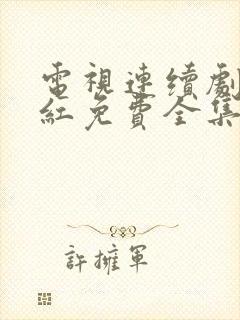 電視連續劇
紅免費全集
許擁軍